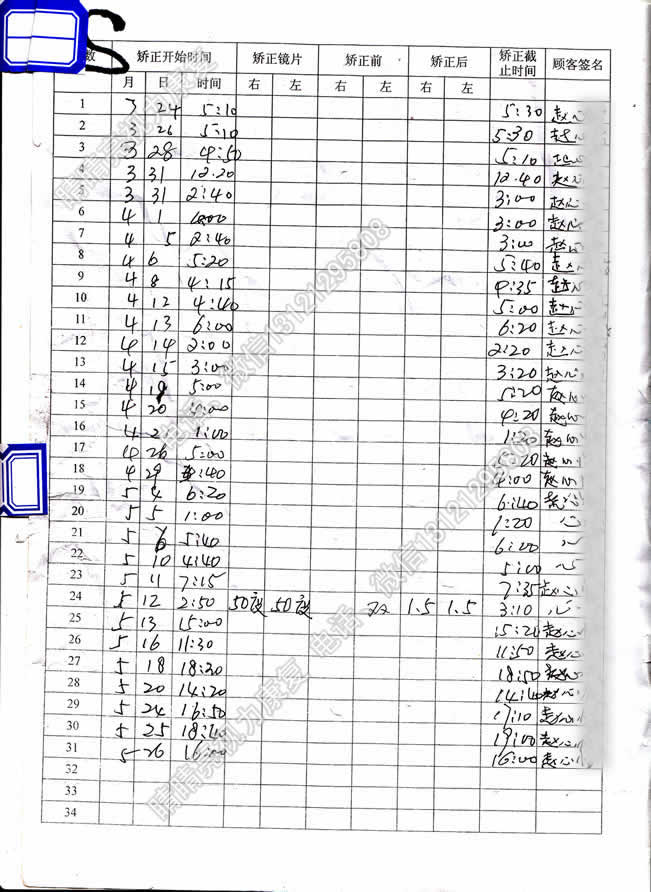 数 矫正开始时间 矫正镜片 矫正前 矫正后 矫正截止时间 顾客签名
月 日 时间 右 左 右 左 右 左
1 3 24 5:10 5:30 赵心
2 3 26 5:10 5:30 赵心
3 3 28 4:50 5:10 赵心
4 3 31 12.20 12.40 赵心
5 3 31 2:40 3:00 赵心
6 4 1 3:00 赵心
7 4 5 2:40 3:00 赵心
8 4 6 5:20 5:40 赵心
9 4 8 4:15 4:35 赵心
10 4 12 4:40 5:00 赵心
11 4 13 6:00 6:20 赵心
12 4 14 2:00 2:20 赵心
13 4 15 3:00 3:20 赵心
14 4 19 5:00 5:20 赵心
15 4 20 4:20 赵心
16 4 2 1:00 1:20 赵心
17 4 26 5:00 5:20 赵心
18 4 29 :40 4:00 赵心
19 5 4 6:20 6:40 赵心
20 5 5 1:00 1:20 心
21 5 6 5:40 6:00
22 5 10 4:40 5:00 心
23 5 11 7:15 7:35 赵心
24 5 12 2:50 50度 50度 1.5 1.5 3:10 心
25 5 13 15:00 15:20 赵心
26 5 16 11:30 11:50 赵心
27 5 18 18:30 18:50 赵心
28 5 20 14:20 14:40 赵心
29 5 24 16:50 17:10 赵心
30 5 25 18:40 19:00 赵心
31 5 26 16:00 16:00 赵心
32
33
34
睛睛亮视力康复 电话、微信13121295808
电话、微信13121295808
睛睛亮视力康复